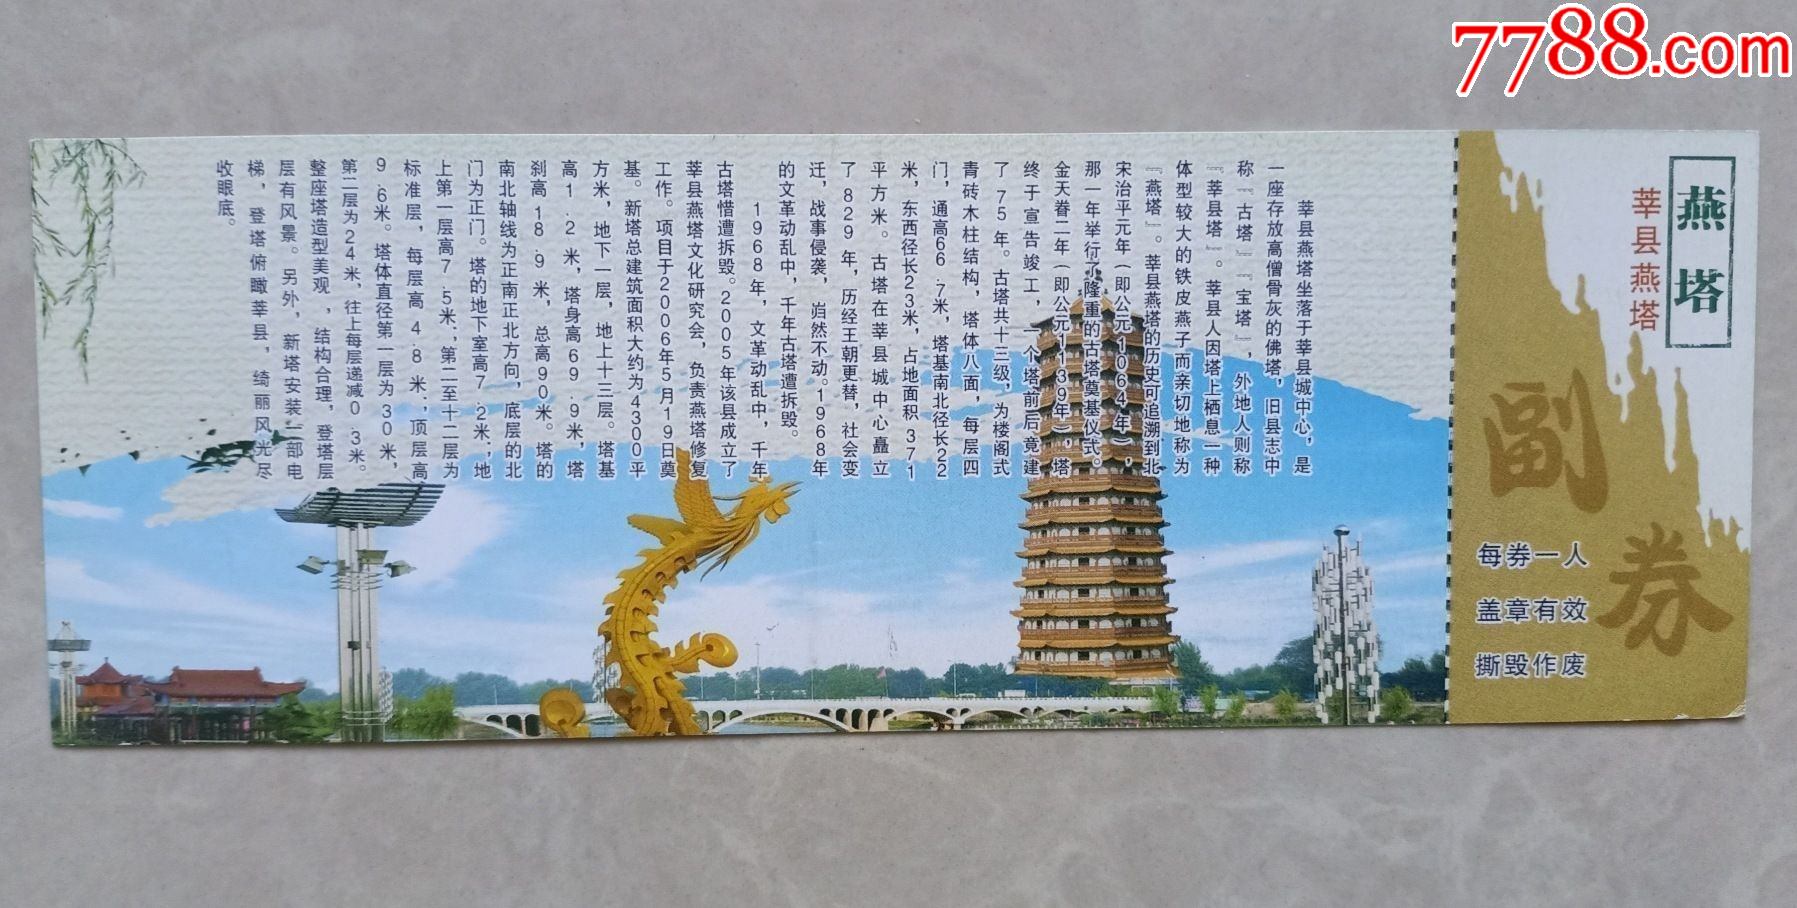 7788.com
燕塔
莘县燕塔
副券
每券一人
盖章有效
撕毁作废
莘县燕塔坐落于莘县城中心，是
一座存放高僧骨灰的佛塔，旧县志中
称『古塔』『宝塔』，外地人则称
『莘县塔』。莘县人因塔上栖息一种
体型较大的铁皮燕子而亲切地称为
『燕塔』。莘县燕塔的历史可追溯到北
宋治平元年（即公元1064年），
那一年举行了隆重的古塔奠基仪式。
金天眷二年（即公元1139年），塔
终于宣告竣工，一个塔前后竟建
了75年。古塔共十三级，为楼阁式
青砖木柱结构，塔体八面，每层四
门，通高66.7米，塔基南北径长22
米，东西径长23米，占地面积371
平方米。古塔在莘县城中心矗立
了829年，历经王朝更替，社会变
迁，战事侵袭，岿然不动。1968年
的文革动乱中，千年古塔遭拆毁。
1968年，文革动乱中，千年
古塔惜遭拆毁。2005年该县成立了
莘县燕塔文化研究会，负责燕塔修复
工作。项目于2006年5月19日奠
基。新塔总建筑面积大约为4300平
方米，地下一层，地上十三层。塔基
高1.2米，塔身高69.9米，塔
刹高18.9米，总高90米。塔的
南北轴线为正南正北方向，底层的北
门为正门。塔的地下室高7.2米；地
上第一层高7.5米；第二至十二层为
标准层，每层高4.8米；顶层高
9.6米。塔体直径第一层为30米，
第二层为24米，往上每层递减0.3米。
整座塔造型美观，结构合理，登塔层
层有风景。另外，新塔安装一部电
梯，登塔俯瞰莘县，绮丽风光尽
收眼底。